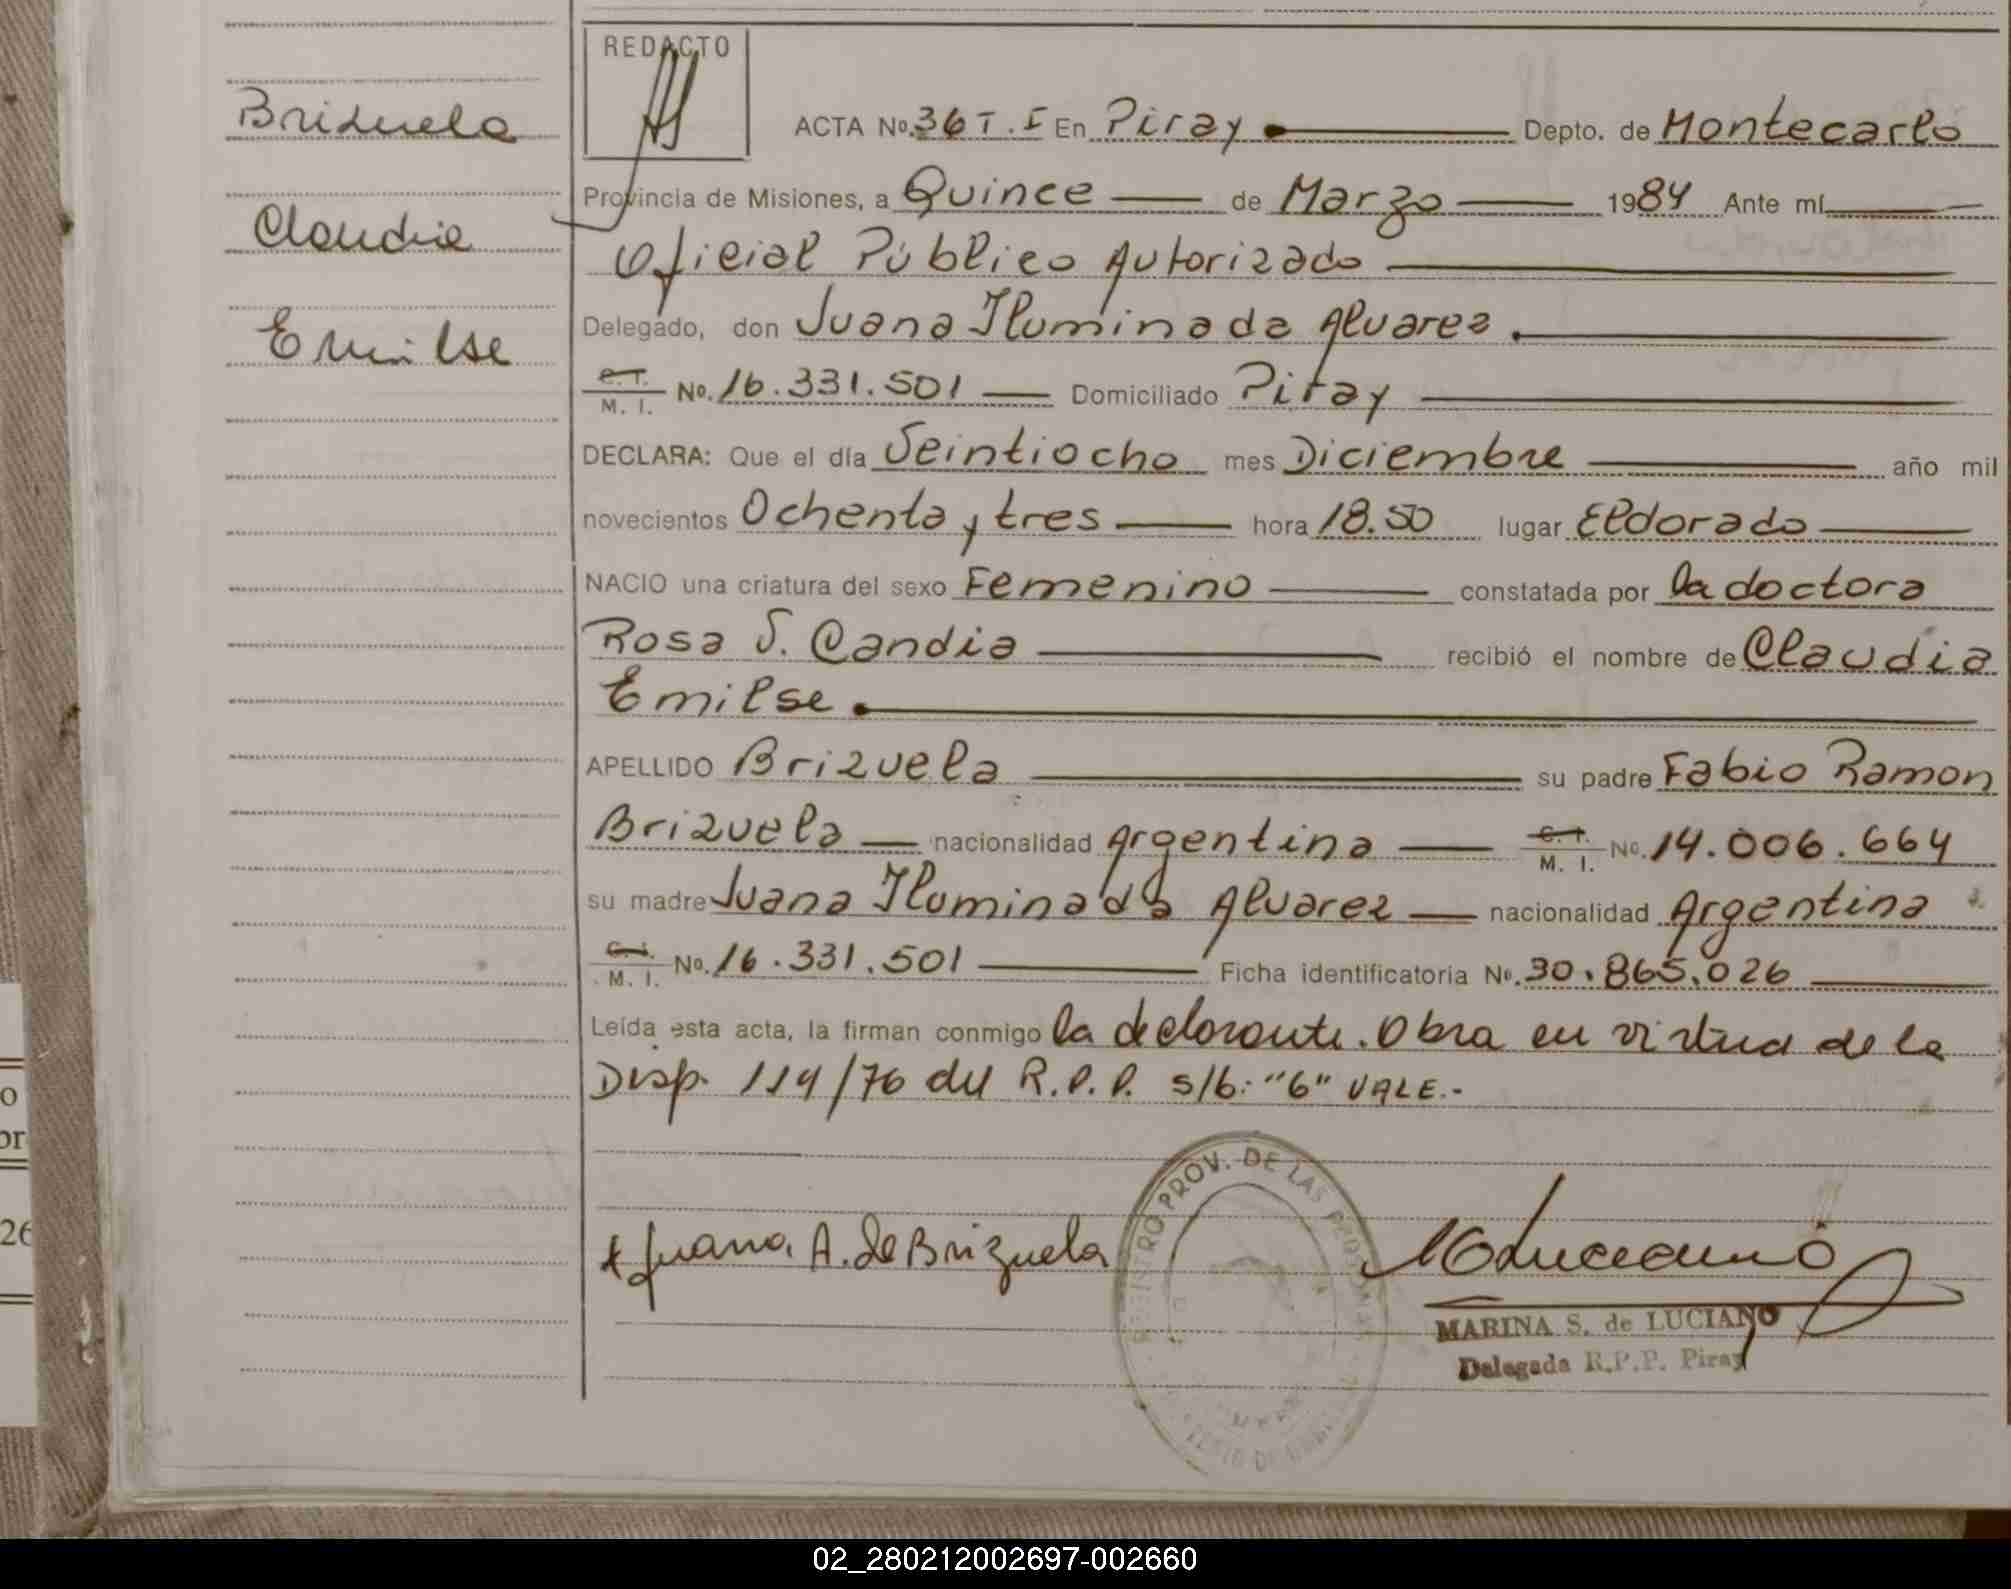 REDACTO
Brizuela
Claudia
Emilse
ACTA No. 36 T. I En Piray Depto. de Montecarlo
Provincia de Misiones, a Quince de Marzo 1984 Ante mí
Oficial Público Autorizado
Delegado, don Juana Iluminada Alvarez.
C. I. M. I. No. 16.331.501 Domiciliado Piray
DECLARA: Que el día Veintiocho mes Diciembre año mil
novecientos Ochenta y tres hora 18.50 lugar Eldorado
NACIO una criatura del sexo Femenino constatada por la doctora
Rosa S. Candia recibió el nombre de Claudia
Emilse.
APELLIDO Brizuela su padre Fabio Ramon
Brizuela nacionalidad Argentina C. I. M. I. No. 14.006.664
su madre Juana Iluminada Alvarez nacionalidad Argentina
C. I. M. I. No. 16.331.501 Ficha identificatoria No. 30.865.026
Leída esta acta, la firman conmigo la declarante. Obra en virtud de la
Disp. 114/76 del R.P.P. s/b: "6" VALE.-
Juana A. de Brizuela
REGISTRO PROV. DE LAS PERSONAS
MARINA S. de LUCIANO
Delegada R.P.P. Piray
26
02_280212002697-002660